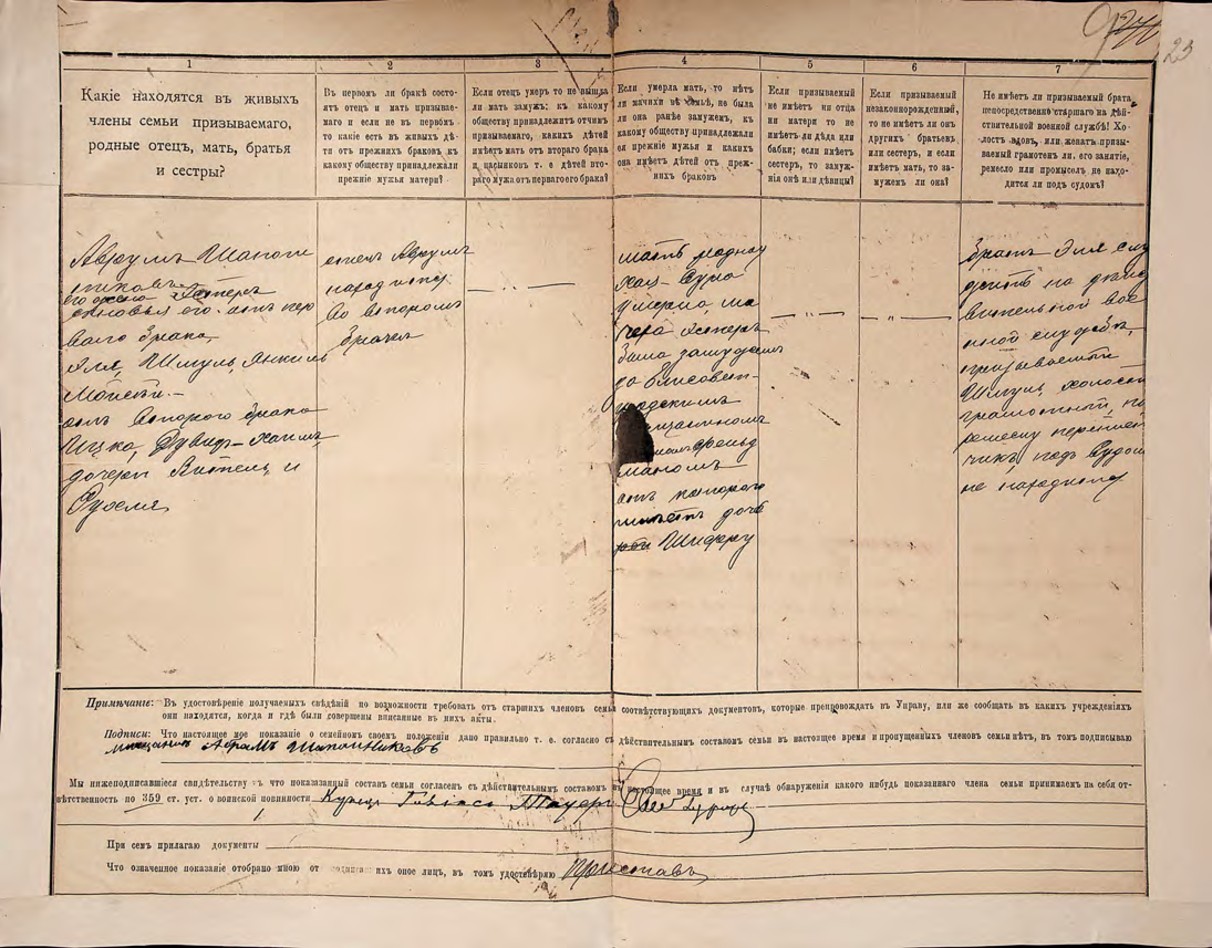 23
1
2
3
4
5
6
7
Какіе находятся въ живыхъ
члены семьи призываемаго,
родные отецъ, мать, братья
и сестры?
Въ первомъ ли бракѣ состо-
ятъ отецъ и мать призывае-
маго и если не въ первомъ
то какіе есть въ живыхъ дѣ-
ти отъ прежнихъ браковъ къ
какому обществу принадлежали
прежніе мужья матери?
Если отецъ умеръ то не вышла
ли мать замужъ; къ какому
обществу принадлежитъ отчимъ
призываемаго, какихъ дѣтей
имѣетъ мать отъ втораго брака
и пасынковъ т. е дѣтей вто-
раго мужа отъ перваго его брака?
Если умерла мать, то нѣтъ
ли мачихи въ семьѣ, не была
ли она ранѣе замужемъ, къ
какому обществу принадлежали
ея прежніе мужья и какихъ
она имѣетъ дѣтей отъ преж-
нихъ браковъ
Если призываемый
не имѣетъ ни отца
ни матери то не
имѣетъ ли дѣда или
бабки; если имѣетъ
сестеръ, то замуж-
нія онѣ или дѣвицы?
Если призываемый
незаконнорожденный,
то не имѣетъ ли онъ
другихъ братьевъ
или сестеръ, и если
имѣетъ мать, то за-
мужемъ ли она?
Не имѣетъ ли призываемый брата
непосредственно старшаго на дѣй-
ствительной военной службѣ! Хо-
лостъ вдовъ, или женатъ призы-
ваемый грамотенъ ли, его занятіе,
ремесло или промыселъ, не нахо-
дится ли подъ судомъ?
Аврумъ Шапош
никовъ
его жена Эстеръ
сыновья его отъ пер
ваго брака,
Эля, Шмуль, Янкель
отъ второго брака
Ицко, Дувидъ-Хаимъ
дочери и
отецъ Аврумъ
во второмъ
бракѣ
мать родная
Хая-Сура
умерла, ма
чеха Эстеръ
была замужемъ
за Елисавет-
градскимъ
фельд
маномъ
отъ котораго
имѣетъ доче
Шифру
братъ Эля слу
житъ на дѣйс
вительной вое
нной службѣ,
призываемый
Шмуль, холостъ
грамотный, по
ремеслу переплет
чикъ, подъ судом
не
Примѣчаніе: Въ удостовѣреніе получаемыхъ свѣдѣній по возможности требовать отъ старшихъ членовъ семьи соотвѣтствующихъ документовъ, которые препровождать въ Управу, или же сообщать въ какихъ учрежденіяхъ
они находятся, когда и гдѣ были совершены вписанные въ нихъ акты.
Подписи: Что настоящее мое показаніе о семейномъ своемъ положеніи дано правильно т. е. согласно съ дѣйствительнымъ составомъ семьи въ настоящее время и пропущенныхъ членовъ семьи нѣтъ, въ томъ подписываю
мещанинъ Абрамъ Шапошниковъ
Мы нижеподписавшіеся свидѣтельству въ что показазанный составъ семьи согласенъ съ дѣйствительнымъ составомъ въ настоящее время и въ случаѣ обнаруженія какого нибудь показаннаго члена семьи принимаемъ на себя от-
вѣтственность по 359 ст. уст. о воинской повинности Купецъ
При семъ прилагаю документы
Что означенное показаніе отобрано мною от ихъ оное лицъ, въ томъ удостовѣряю Приставъ